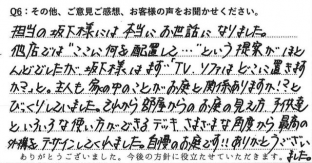 Q6：その他、ご意見ご感想、お客様の声をお聞かせください。
担当の坂下様には本当にお世話になりました。
他店では"ここに何を配置して…"という提案がほと
んどでしたが、坂下様はまず「TV、ソファはどこに置きます
か？」と。主人も家の中のことがお庭と関係ありますか！？と
びっくりしていました。それから部屋からのお庭の見え方、子供達
といろいろな使い方ができるデッキ、さまざまな角度から最高の
外構をデザインしてくれました。自慢のお庭です！！ありがとうござい
ありがとうございました。今後の方針に役立たせていただきます。ました。